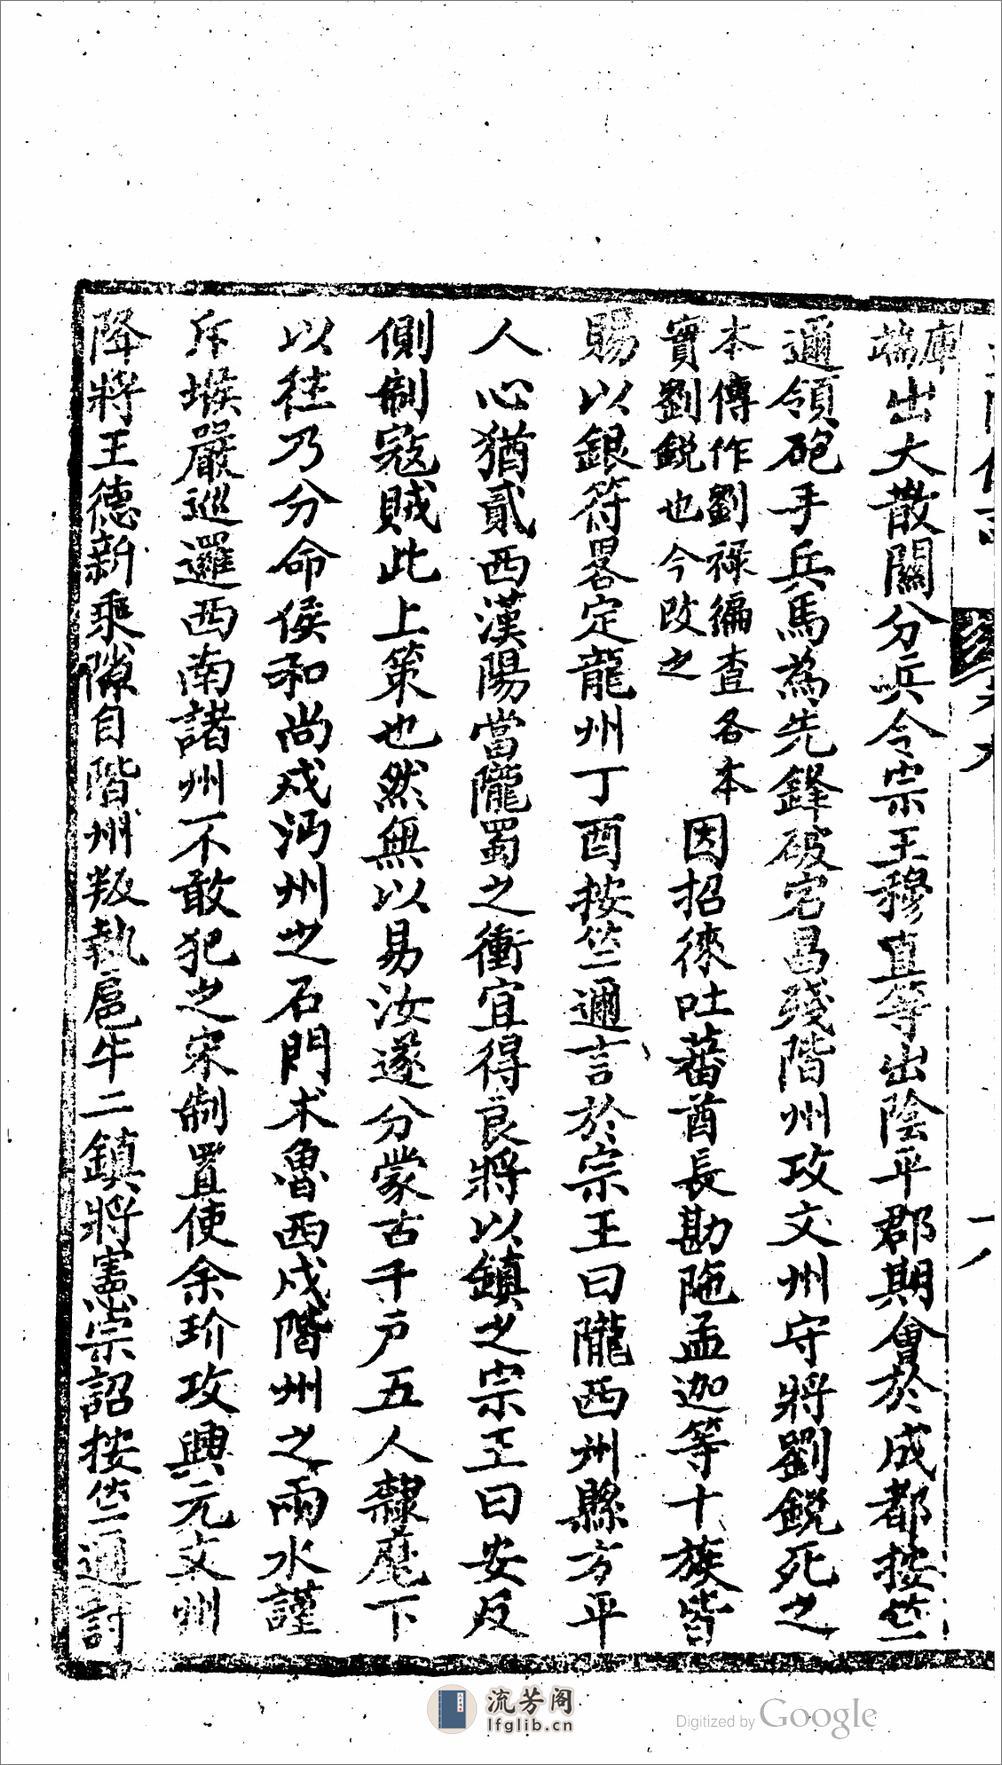 庫端出大散關分兵令宗王穆直等出陰平郡期會於成都按竺
邇領砲手兵馬為先鋒破宕昌殘階州攻文州守將劉銳死之
本傳作劉禄徧查各本
實劉銳也今改之
因招徠吐蕃酋長勘陁孟迦等十族皆
賜以銀符畧定龍州丁酉按竺邇言於宗王曰隴西州縣方平
人心猶貳西漢陽當隴蜀之衝宜得良將以鎮之宗王曰安反
側制寇賊此上策也然無以易汝遂分蒙古千戶五人隸麾下
以往乃分命侯和尚戍沔州之石門术魯西戍階州之兩水謹
斥堠嚴巡邏西南諸州不敢犯之宋制置使余玠攻興元文州
降將王德新乘隙自階州叛執扈牛二鎮將憲宗詔按竺邇討
流芳阁
lfglib.cn
Digitized by Google